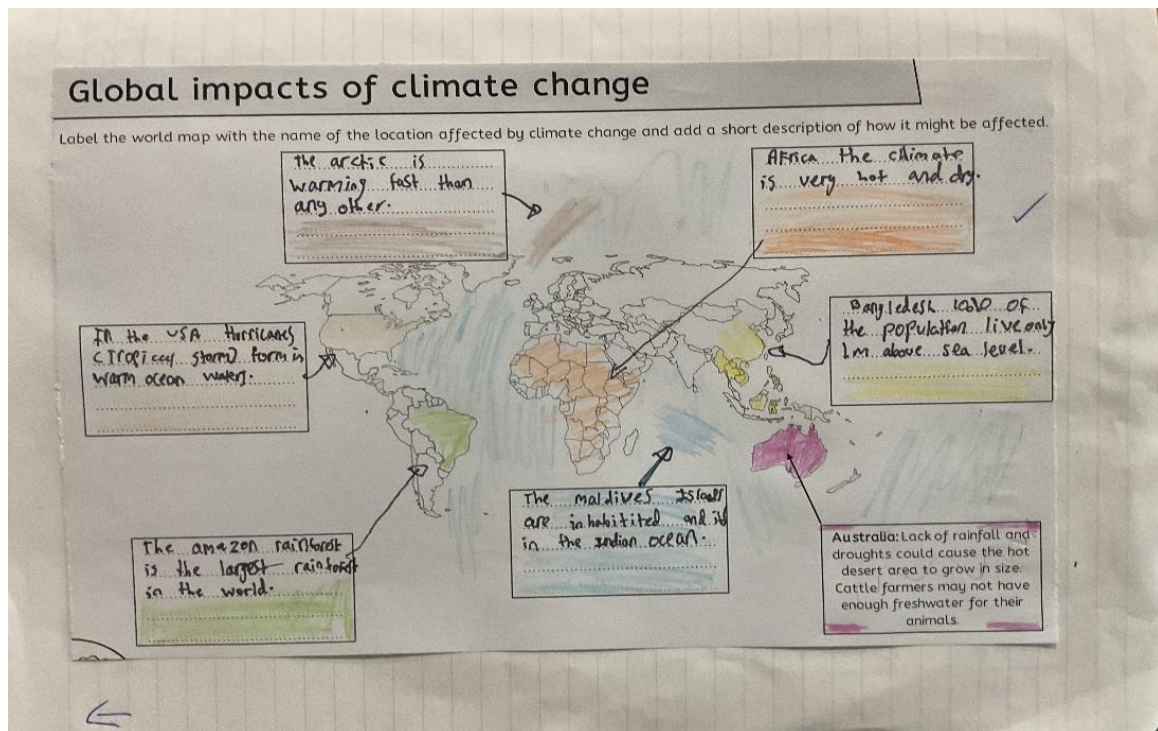 Global impacts of climate change
Label the world map with the name of the location affected by climate change and add a short description of how it might be affected.
The arctic is
warming fast than
any other.
Africa the climate
is very hot and dry.
In the USA Hurricanes
(Tropical storm) form in
warm ocean waters.
Bangledesh 10% of
the population live only
1m above sea level.
The maldives Islands
are inhabitited and is
in the Indian ocean.
The amazon rainforest
is the largest rainforest
in the world.
Australia: Lack of rainfall and
droughts could cause the hot
desert area to grow in size.
Cattle farmers may not have
enough freshwater for their
animals.